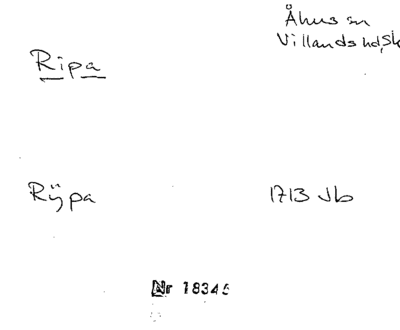 Åhus sn
Villands hd, Sk
Ripa
Rÿpa 1713 Jb
Nr 18345